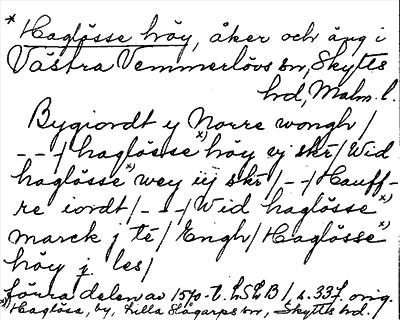 * Haglösse höy, åker och äng i
Västra Vemmerlövs sn, Skytts
hd, Malm. l.
Bygiordt y Norre wongh /
- - -/ haglösse x) höy vj skr/ Wid
haglösse x) wey iij skr /- -/ Hauff-
re iordt /- - -/ Wid haglösse x)
marck j te/ Engh/ Haglösse x)
höy j les/
förra delen av 1570-t. LSLB / s. 337. orig.
x) Haglösa, by, Lilla Slågarps sn, Skytts hd. /